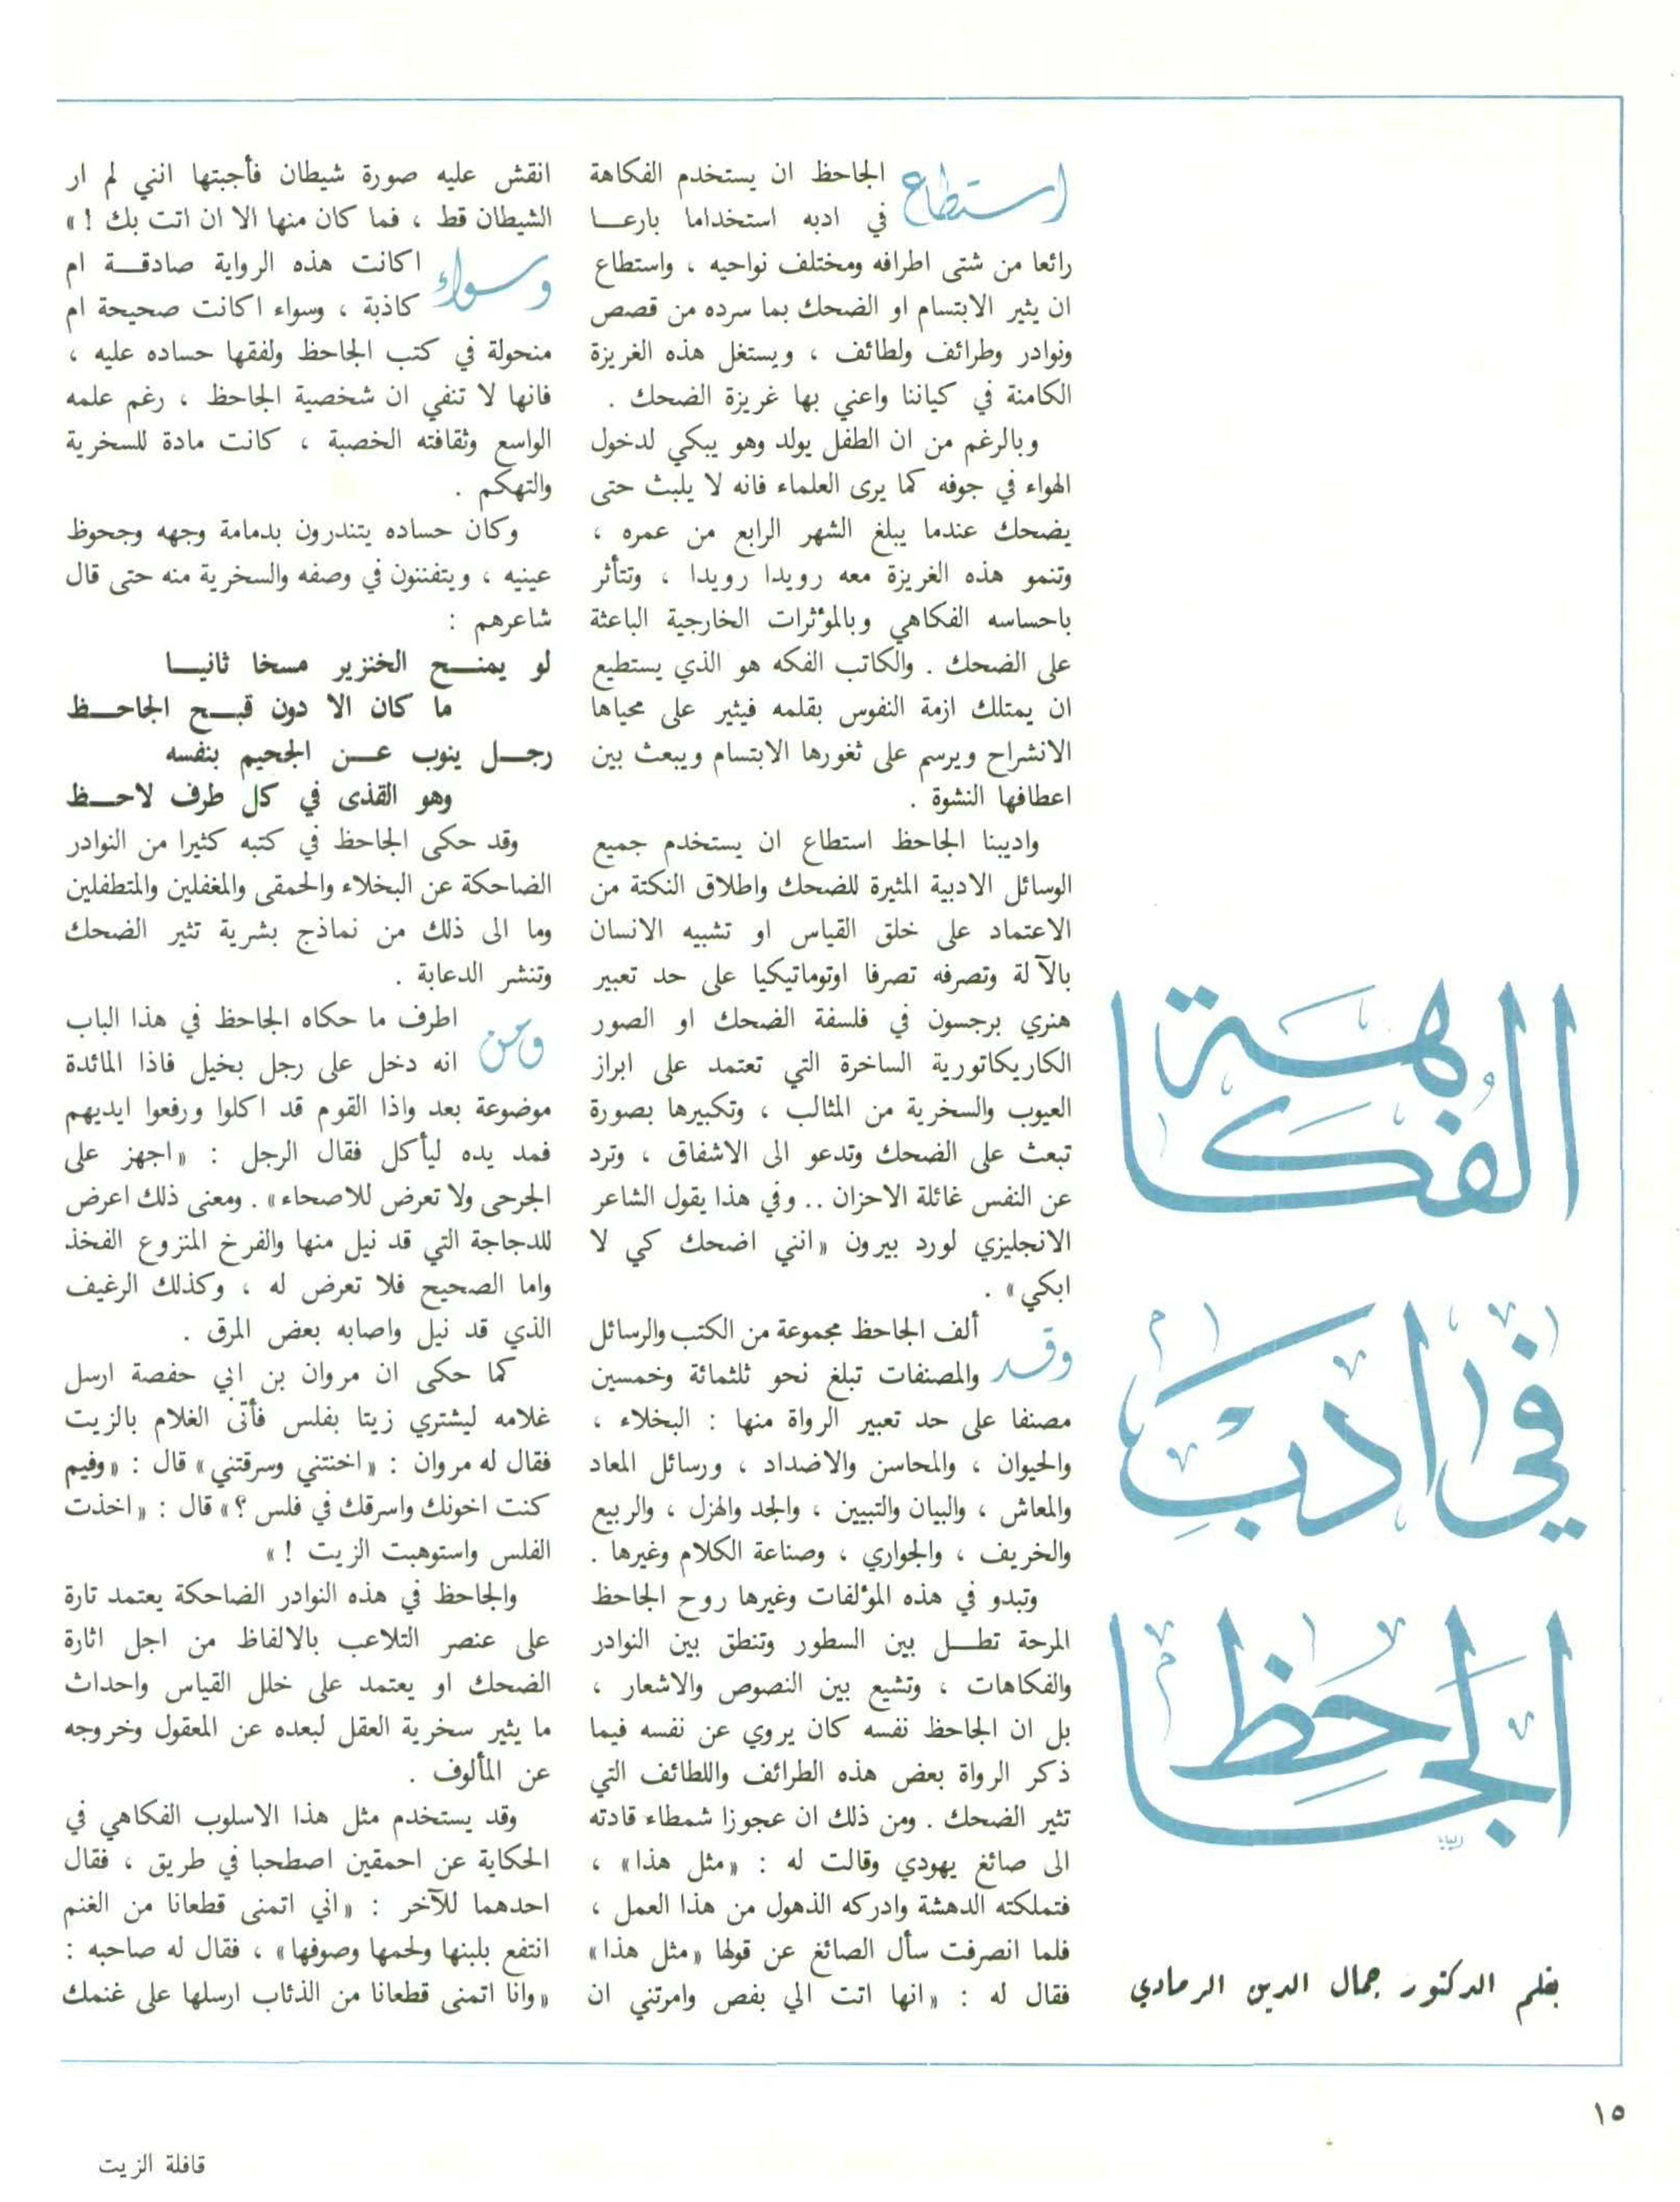 الفكاهة
في ادب
الجاحظ
بقلم الدكتور جمال الدين الرمادي
استطاع الجاحظ ان يستخدم الفكاهة
في ادبه استخداما بارعا
رائعا من شتى اطرافه ومختلف نواحيه ، واستطاع
ان يثير الابتسام او الضحك بما سرده من قصص
ونوادر وطرائف ولطائف ، ويستغل هذه الغريزة
الكامنة في كياننا واعني بها غريزة الضحك .
وبالرغم من ان الطفل يولد وهو يبكي لدخول
الهواء في جوفه كما يرى العلماء فانه لا يلبث حتى
يضحك عندما يبلغ الشهر الرابع من عمره ،
وتنمو هذه الغريزة معه رويدا رويدا ، وتتأثر
باحساسه الفكاهي وبالمؤثرات الخارجية الباعثة
على الضحك . والكاتب الفكه هو الذي يستطيع
ان يمتلك ازمة النفوس بقلمه فيثير على محياها
الانشراح ويرسم على ثغورها الابتسام ويبعث بين
اعطافها النشوة .
واديبنا الجاحظ استطاع ان يستخدم جميع
الوسائل الادبية المثيرة للضحك واطلاق النكتة من
الاعتماد على خلق القياس او تشبيه الانسان
بالآلة وتصرفه تصرفا اوتوماتيكيا على حد تعبير
هنري برجسون في فلسفة الضحك او الصور
الكاريكاتورية الساخرة التي تعتمد على ابراز
العيوب والسخرية من المثالب ، وتكبيرها بصورة
تبعث على الضحك وتدعو الى الاشفاق ، وترد
عن النفس غائلة الاحزان .. وفي هذا يقول الشاعر
الانجليزي لورد بيرون «انني اضحك كي لا
ابكي» .
وقد ألف الجاحظ مجموعة من الكتب والرسائل
والمصنفات تبلغ نحو ثلثمائة وخمسين
مصنفا على حد تعبير الرواة منها : البخلاء ،
والحيوان ، والمحاسن والاضداد ، ورسائل المعاد
والمعاش ، والبيان والتبيين ، والجد والهزل ، والربيع
والخريف ، والجواري ، وصناعة الكلام وغيرها .
وتبدو في هذه المؤلفات وغيرها روح الجاحظ
المرحة تطل بين السطور وتنطق بين النوادر
والفكاهات ، وتشيع بين النصوص والاشعار ،
بل ان الجاحظ نفسه كان يروي عن نفسه فيما
ذكر الرواة بعض هذه الطرائف واللطائف التي
تثير الضحك . ومن ذلك ان عجوزا شمطاء قادته
الى صائغ يهودي وقالت له : «مثل هذا» ،
فتملكته الدهشة وادركه الذهول من هذا العمل ،
فلما انصرفت سأل الصائغ عن قولها «مثل هذا»
فقال له : «انها اتت الي بفص وامرتني ان
انقش عليه صورة شيطان فأجبتها انني لم ار
الشيطان قط ، فما كان منها الا ان اتت بك ! »
وسواء اكانت هذه الرواية صادقة ام
كاذبة ، وسواء اكانت صحيحة ام
منحولة في كتب الجاحظ ولفقها حساده عليه ،
فانها لا تنفي ان شخصية الجاحظ ، رغم علمه
الواسع وثقافته الخصبة ، كانت مادة للسخرية
والتهكم .
وكان حساده يتندرون بدمامة وجهه وجحوظ
عينيه ، ويتفننون في وصفه والسخرية منه حتى قال
شاعرهم :
لو يمنح الخنزير مسخا ثانيا
ما كان الا دون قبح الجاحظ
رجل ينوب عن الجحيم بنفسه
وهو القذى في كل طرف لاحظ
وقد حكى الجاحظ في كتبه كثيرا من النوادر
الضاحكة عن البخلاء والحمقى والمغفلين والمتطفلين
وما الى ذلك من نماذج بشرية تثير الضحك
وتنشر الدعابة .
ومن اطرف ما حكاه الجاحظ في هذا الباب
انه دخل على رجل بخيل فاذا المائدة
موضوعة بعد واذا القوم قد اكلوا ورفعوا ايديهم
فمد يده ليأكل فقال الرجل : «اجهز على
الجرحى ولا تعرض للاصحاء» . ومعنى ذلك اعرض
للدجاجة التي قد نيل منها والفرخ المنزوع الفخذ
واما الصحيح فلا تعرض له ، وكذلك الرغيف
الذي قد نيل واصابه بعض المرق .
كما حكى ان مروان بن ابي حفصة ارسل
غلامه ليشتري زيتا بفلس فأتى الغلام بالزيت
فقال له مروان : «اخنتني وسرقتني» قال : «وفيم
كنت اخونك واسرقك في فلس ؟» قال : «اخذت
الفلس واستوهبت الزيت ! »
والجاحظ في هذه النوادر الضاحكة يعتمد تارة
على عنصر التلاعب بالالفاظ من اجل اثارة
الضحك او يعتمد على خلل القياس واحداث
ما يثير سخرية العقل لبعده عن المعقول وخروجه
عن المألوف .
وقد يستخدم مثل هذا الاسلوب الفكاهي في
الحكاية عن احمقين اصطحبا في طريق ، فقال
احدهما للآخر : «اني اتمنى قطعانا من الغنم
انتفع بلبنها ولحمها وصوفها» ، فقال له صاحبه :
«وانا اتمنى قطعانا من الذئاب ارسلها على غنمك
١٥
قافلة الزيت